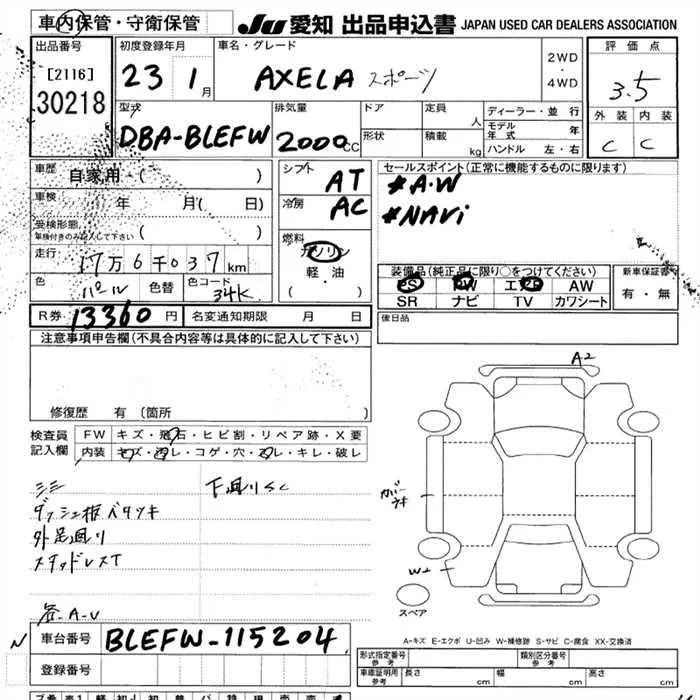 車内保管・守衛保管 JU 愛知 出品申込書 JAPAN USED CAR DEALERS ASSOCIATION
出品番号 初度登録年月 車名・グレード 評価点
[2116] 30218
23 1 月 AXELA スポーツ 2WD・4WD 3.5
型式 排気量 ドア 定員 人 ディーラー・並行 外装 内装
DBA-BLEFW 2000 CC 形状 積載 kg モデル年式 年 C C
ハンドル 左・右
車歴 自家用・( ) シフト AT セールスポイント(正常に機能するものに限ります)
車検 年 月( 日) 冷房 AC #A・W
受検形態 #NAVi
車検付きのみ記入して下さい ( ) 燃料 ガソリン
走行 17万6千037km 軽・油 装備品(純正品に限り○をつけてください) 新車保証書
色 パール 色替 色コード 34K ( ・ ) PS PW エアB AW 有・無
SR ナビ TV カワシート
R券 13360 円 名変通知期限 月 日 後日品
注意事項申告欄(不具合内容等は具体的に記入して下さい)
A2
修復歴 有 〔箇所 〕
検査員 FW キズ・飛石・ヒビ割・リペア跡・X要
記入欄 内装 キズ・汚レ・コゲ・穴・スレ・キレ・破レ
下廻りSC
カバーウキ
ダッシュ框ベタツキ
外足廻り
スタッドレスT
W2
スペア
A-V
車台番号 BLEFW-115204 A-キズ E-エクボ U-凹み W-補修跡 S-サビ C-腐食 XX-交換済
登録番号 形式指定番号 参考 類別区分番号 参考
車庫証明用 参考 長さ cm 幅 cm 高さ cm